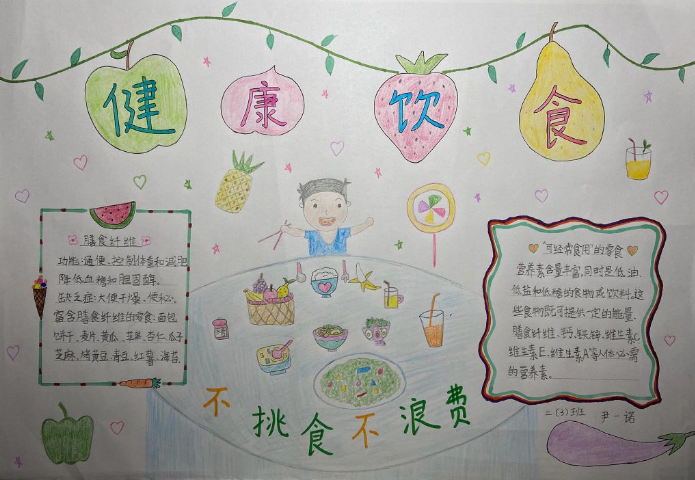 健康饮食
膳食纤维
功能:通便、控制体重和减肥
降低血糖和胆固醇。
缺乏症:大便干燥、便秘。
富含膳食纤维的零食:面包
饼干、麦片、黄瓜、芹菜、杏仁、瓜子
芝麻、烤黄豆、青豆、红薯、海苔
“可经常食用”的零食
营养素含量丰富,同时是低油、
低盐和低糖的食物或饮料,这
些食物既可提供一定的能量、
膳食纤维、钙、铁、锌、维生素C、
维生素E、维生素A等人体必需
的营养素。
不挑食不浪费
二(3)班 尹一诺